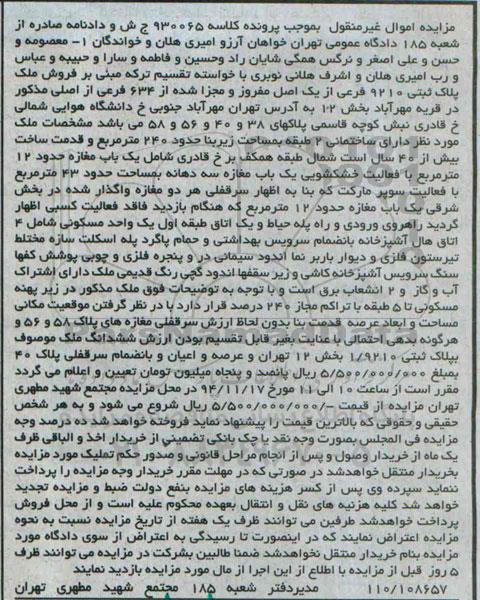 مزایده اموال غیرمنقول بموجب پرونده کلاسه ۹۳۰۰۶۵ ج ش و دادنامه صادره از
شعبه ۱۸۵ دادگاه عمومی تهران خواهان آرزو امیری هلان و خواندگان ۱- معصومه و
حسن و علی اصغر و نرگس همگی شایان راد وحسین و فاطمه و سارا و حبیبه و عباس
و رب امیری هلان و اشرف هلانی نوبری با خواسته تقسیم ترکه مبنی بر فروش ملک
پلاک ثبتی ۹۲۱۰ فرعی از یک اصل مفروز و مجزا شده از ۶۳۴ فرعی از اصلی مذکور
در قریه مهرآباد بخش ۱۲ به آدرس تهران مهرآباد جنوبی خ دانشگاه هوایی شمالی
خ قادری نبش کوچه قاسمی پلاکهای ۳۸ و ۴۰ و ۵۶ و ۵۸ می باشد مشخصات ملک
مورد نظر دارای ساختمانی ۲ طبقه بمساحت زیربنا حدود ۲۴۰ مترمربع و قدمت ساخت
بیش از ۴۰ سال است شمال طبقه همکف بر خ قادری شامل یک باب مغازه حدود ۱۲
مترمربع با فعالیت خشکشویی یک باب مغازه سه دهانه بمساحت حدود ۴۳ مترمربع
با فعالیت سوپر مارکت که بنا به اظهار سرقفلی هر دو مغازه واگذار شده در بخش
شرقی یک باب مغازه حدود ۱۲ مترمربع که هنگام بازدید فاقد فعالیت کسبی اظهار
گردید راهروی ورودی و راه پله حیاط و یک اتاق طبقه اول یک واحد مسکونی شامل ۴
اتاق هال آشپزخانه بانضمام سرویس بهداشتی و حمام پاگرد پله اسکلت سازه مختلط
تیرستون فلزی و دیوار باربر نما اندود سیمانی در و پنجره فلزی و چوبی پوشش کفها
سنگ سرویس آشپزخانه کاشی و زیر سقفها اندود گچی رنگ قدیمی ملک دارای اشتراک
آب و گاز و ۲ انشعاب برق است و با توجه به توضیحات فوق ملک مذکور در زیر پهنه
مسکونی تا ۵ طبقه با تراکم مجاز ۲۴۰ درصد قرار دارد با در نظر گرفتن موقعیت مکانی
مساحت و ابعاد عرصه قدمت بنا بدون لحاظ ارزش سرقفلی مغازه های پلاک ۵۸ و ۵۶ و
هرگونه بدهی احتمالی با عنایت بغیر قابل تقسیم بودن ارزش ششدانگ ملک موصوف
بپلاک ثبتی ۱/۹۲۱۰ بخش ۱۲ تهران و عرصه و اعیان و بانضمام سرقفلی پلاک ۴۰
بمبلغ ۵/۵۰۰/۰۰۰/۰۰۰ ریال پانصد و پنجاه میلیون تومان تعیین و اعلام می گردد
مقرر است از ساعت ۱۰ الی ۱۱ مورخ ۹۴/۱۱/۱۷ در محل مزایده مجتمع شهید مطهری
تهران مزایده از قیمت ۵/۵۰۰/۰۰۰/۰۰۰ ریال شروع می شود و به هر شخص
حقیقی و حقوقی که بالاترین قیمت را پیشنهاد نماید فروخته خواهد شد ده درصد وجه
مزایده فی المجلس بصورت وجه نقد یا چک بانکی تضمینی از خریدار اخذ و الباقی ظرف
یک ماه از خریدار وصول و پس از انجام مراحل قانونی و صدور حکم تملیک مورد مزایده
بخریدار منتقل خواهدشد در صورتی که در مهلت مقرر خریدار وجه مزایده را پرداخت
ننماید سپرده وی پس از کسر هزینه های مزایده بنفع دولت ضبط و مزایده تجدید
خواهد شد کلیه هزینه های نقل و انتقال بعهده محکوم علیه است و از محل فروش
پرداخت خواهدشد طرفین می توانند ظرف یک هفته از تاریخ مزایده نسبت به نحوه
مزایده اعتراض نمایند که در اینصورت تا رسیدگی به اعتراض از سوی دادگاه مورد
مزایده بنام خریدار منتقل نخواهدشد ضمنا طالبین بشرکت در مزایده می توانند ظرف
۵ روز قبل از مزایده با اطلاع از این اجرا از مال مورد مزایده بازدید نمایند
۱۱۰/۱۰۸۶۵۷ مدیردفتر شعبه ۱۸۵ مجتمع شهید مطهری تهران